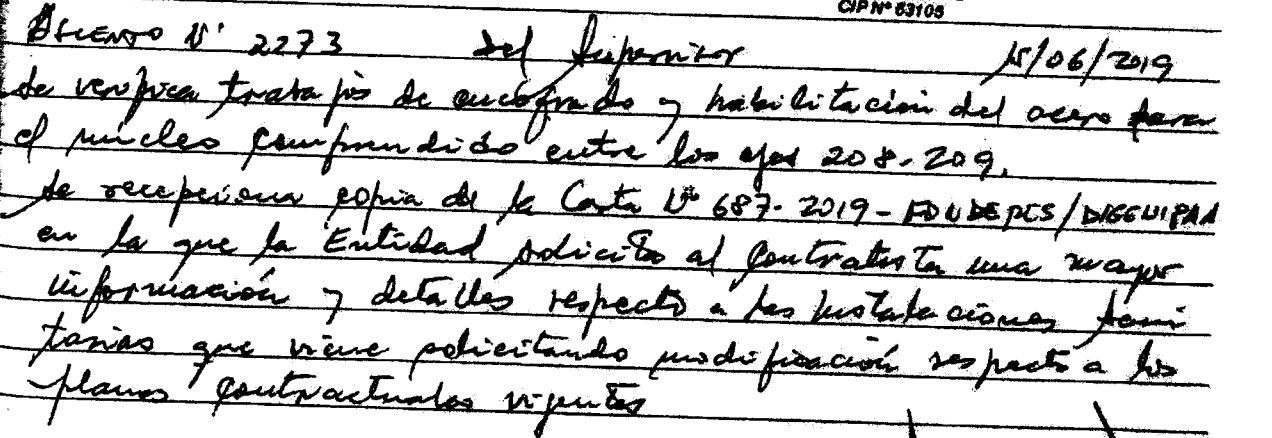 CIP N° 53105
ASIENTO N° 2273 del Supervisor 15/06/2019
Se verifica trabajos de encofrado y habilitación del acero para
el núcleo comprendido entre los ejes 208-209.
Se recepciona copia de la Carta N° 687-2019-FONDEPES/DIGENIPAA
en la que la Entidad solicita al Contratista una mayor
información y detalles respecto a las Instalaciones Sani
tarias que viene solicitando modificación respecto a los
planos contractuales vigentes